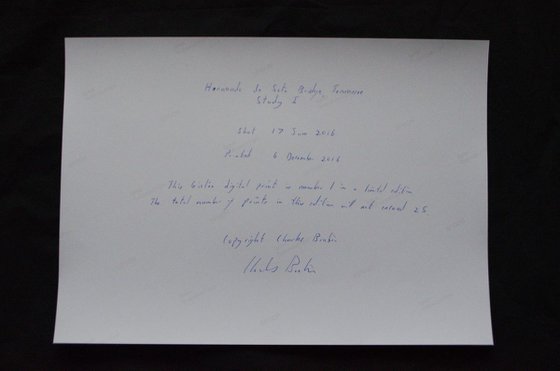 Hernando de Soto Bridge, Tennessee
Study I
Shot 17 June 2016
Printed 6 December 2016
This Giclée digital print is number 1 in a limited edition
The total number of prints in this edition will not exceed 25
Copyright Charles Brabin